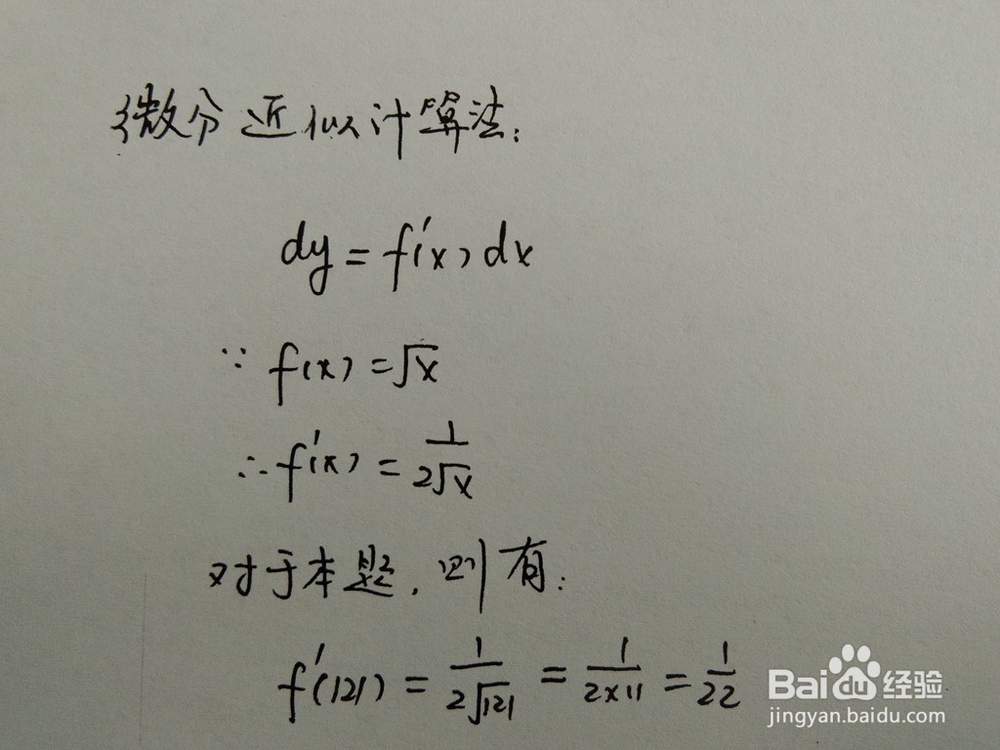 微分近似计算法:
dy = f'(x) dx
∵ f(x) = √x
∴ f'(x) = 1/(2√x)
对于本题, 则有:
f'(121) = 1/(2√121) = 1/(2×11) = 1/22
Baidu经验
jingyan.baidu.com